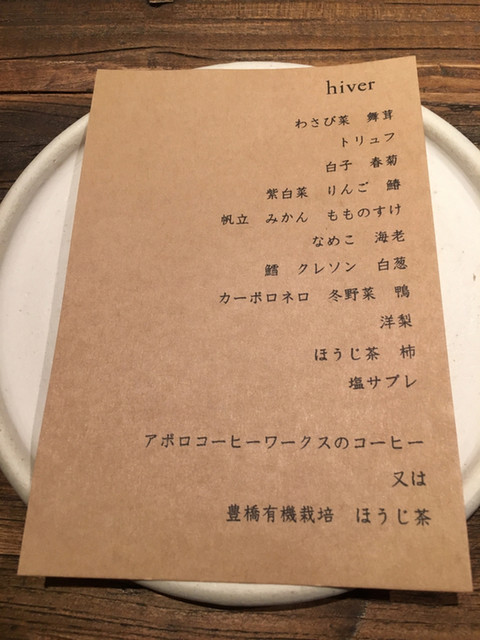 hiver
わさび菜　舞茸
トリュフ
白子　春菊
紫白菜　りんご　鰆
帆立　みかん　もものすけ
なめこ　海老
鱈　クレソン　白葱
カーボロネロ　冬野菜　鴨
洋梨
ほうじ茶　柿
塩サブレ
アポロコーヒーワークスのコーヒー
又は
豊橋有機栽培　ほうじ茶